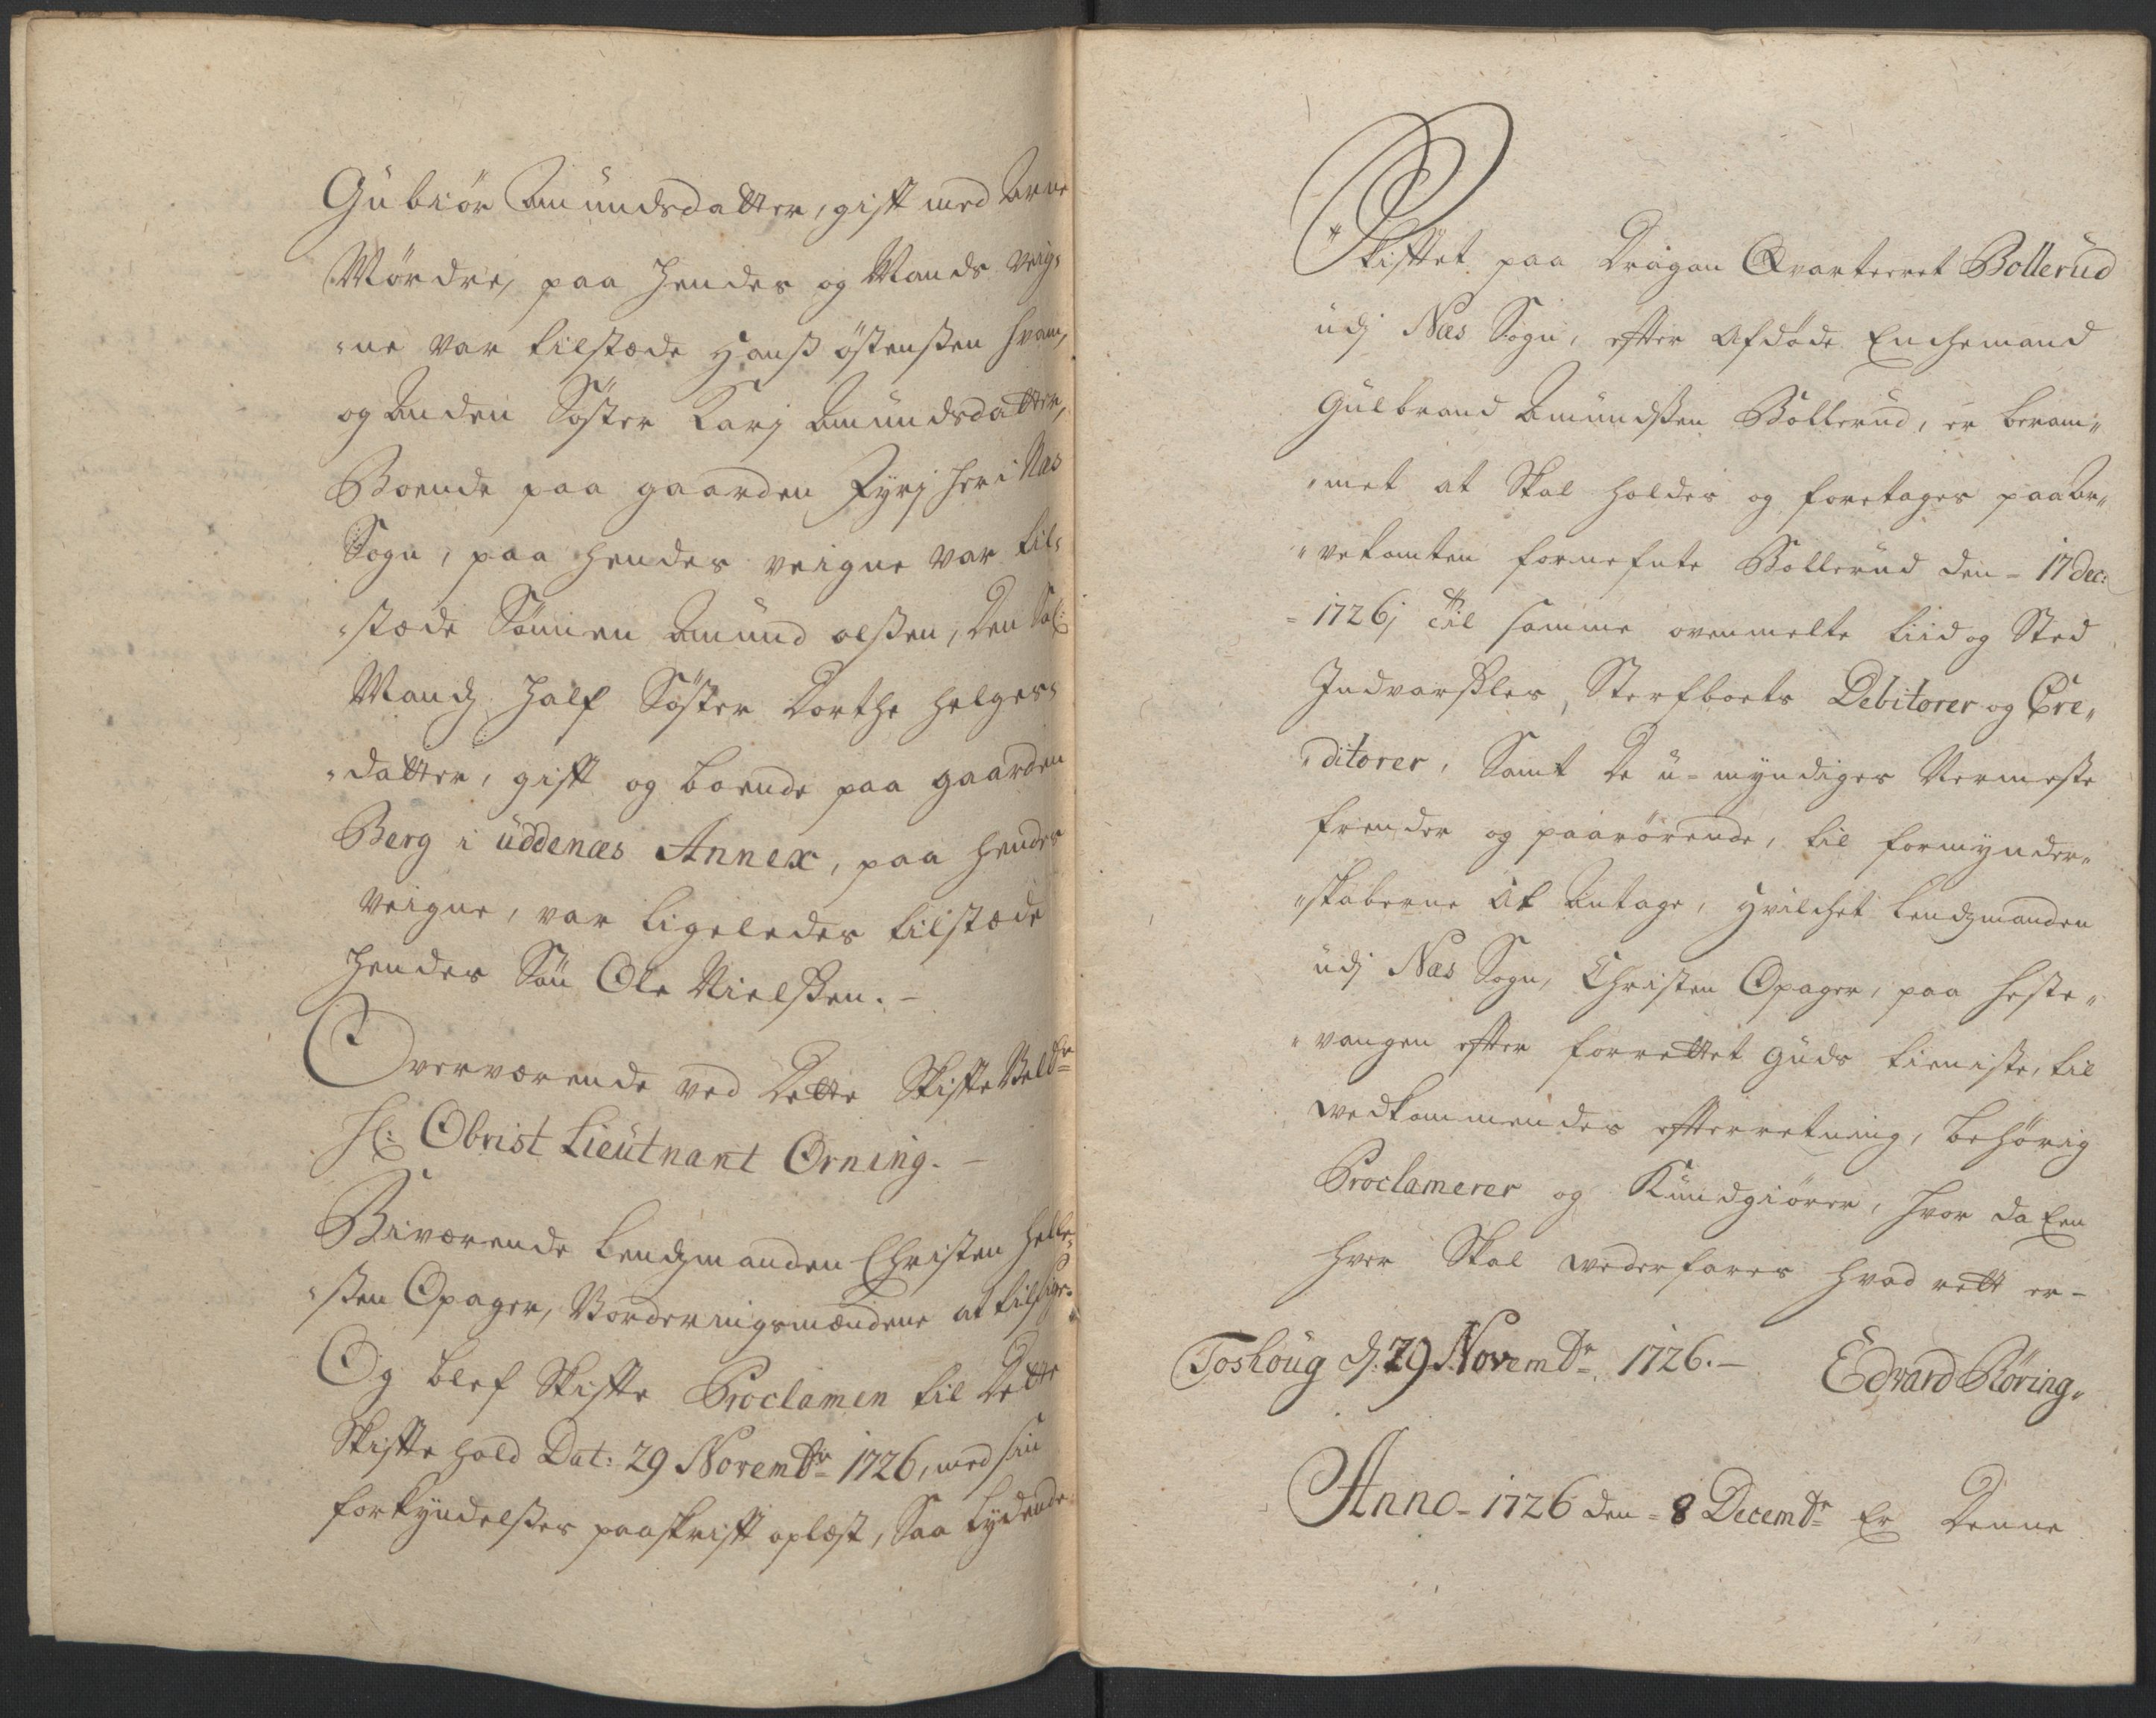 Gubiör Amundsdatter, gift med Arne
Mördre, paa hendes og Mands veig¬
"ne var tilstæde Hanß östenßen hvam,
og Anden Söster Karj Amundsdatter,
Boende paa gaarden Fyrj her i Næs
Sogn, paa hendes veigne var til¬
"stæde Sönnen Amund olßen, Den Sal:
Mandz half Söster Dorthe helges¬
"datter, gift og boende paa gaarden
Berg i üddenæs Annex, paa hendes
veigne, var ligeledes tilstæde
hendes Sön Ole Nielßen. -
Overværende ved Dette Skifte Velbr
Hr: Obrist Lieütnant Orning. -
Biværende Lendzmanden Christen Helle¬
"ßen Opager, Vorderingsmændene at tilsige.
Og blef Skifte Proclamen til Dette
Skifte hold Dat: 29 Novembr 1726, med sin
forkyndelßes paaskrift oplæst, Saa lydende
Skifttet paa Dragon Qvarteret Bollerüd
üdj Næs Sogn, efter Afdöde Enchemand
Gülbrand Amundßen Bollerüd, er beram"
"met at Skal holdes og foretages paa Aa"
"vekamten formeente Bollerüd den - 17 dec:
= 1726; Til samme ovenmelte tiid og Sted
Indvarßles, Sterfboets Debitorer og Cre"
"ditorer, Samt De ü=myndiges Nermeste
frender og paarörende, til formynder"
"skaberne at Antage, hvilchet Lendzmanden
üdj Næs Sogn, Christen Opager, paa heste"
"vangen efter forrettet Güds tieniste, til
vedkommendes efterretning, behörig
Proclamerer og Kündgiörer, hvor da Een
hver Skal vederfares hvad rett er -
Toshoug d: 29 Novembr 1726. - Edvard Röring"
Anno - 1726 den = 8 Decembr Er Denne